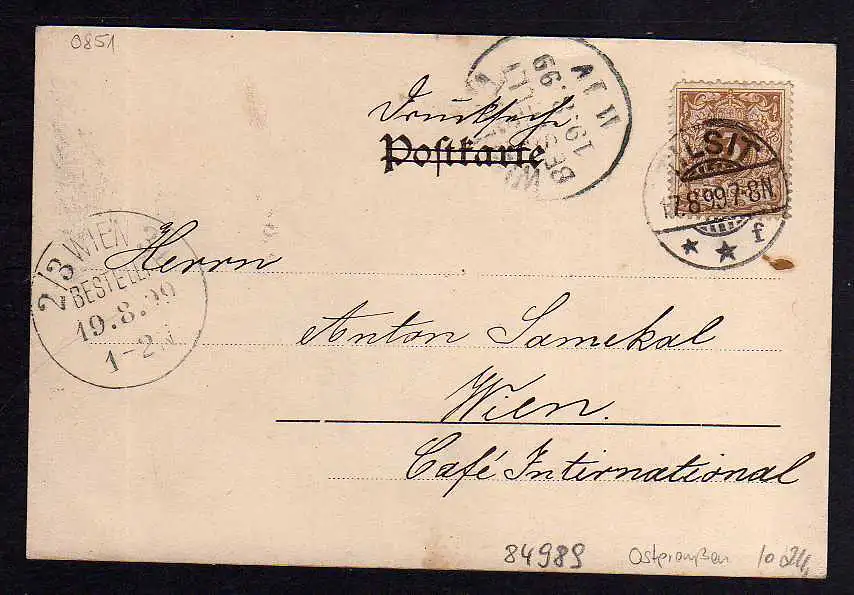 0851
Drucksache
Postkarte
TILSIT
17.8.99.7-8N
* * f
WIEN
19.8.99
2/3 WIEN
BESTELLT
19.8.99
1-2N
Herrn
Anton Samekal
Wien.
Café International
84989
Ostpreußen